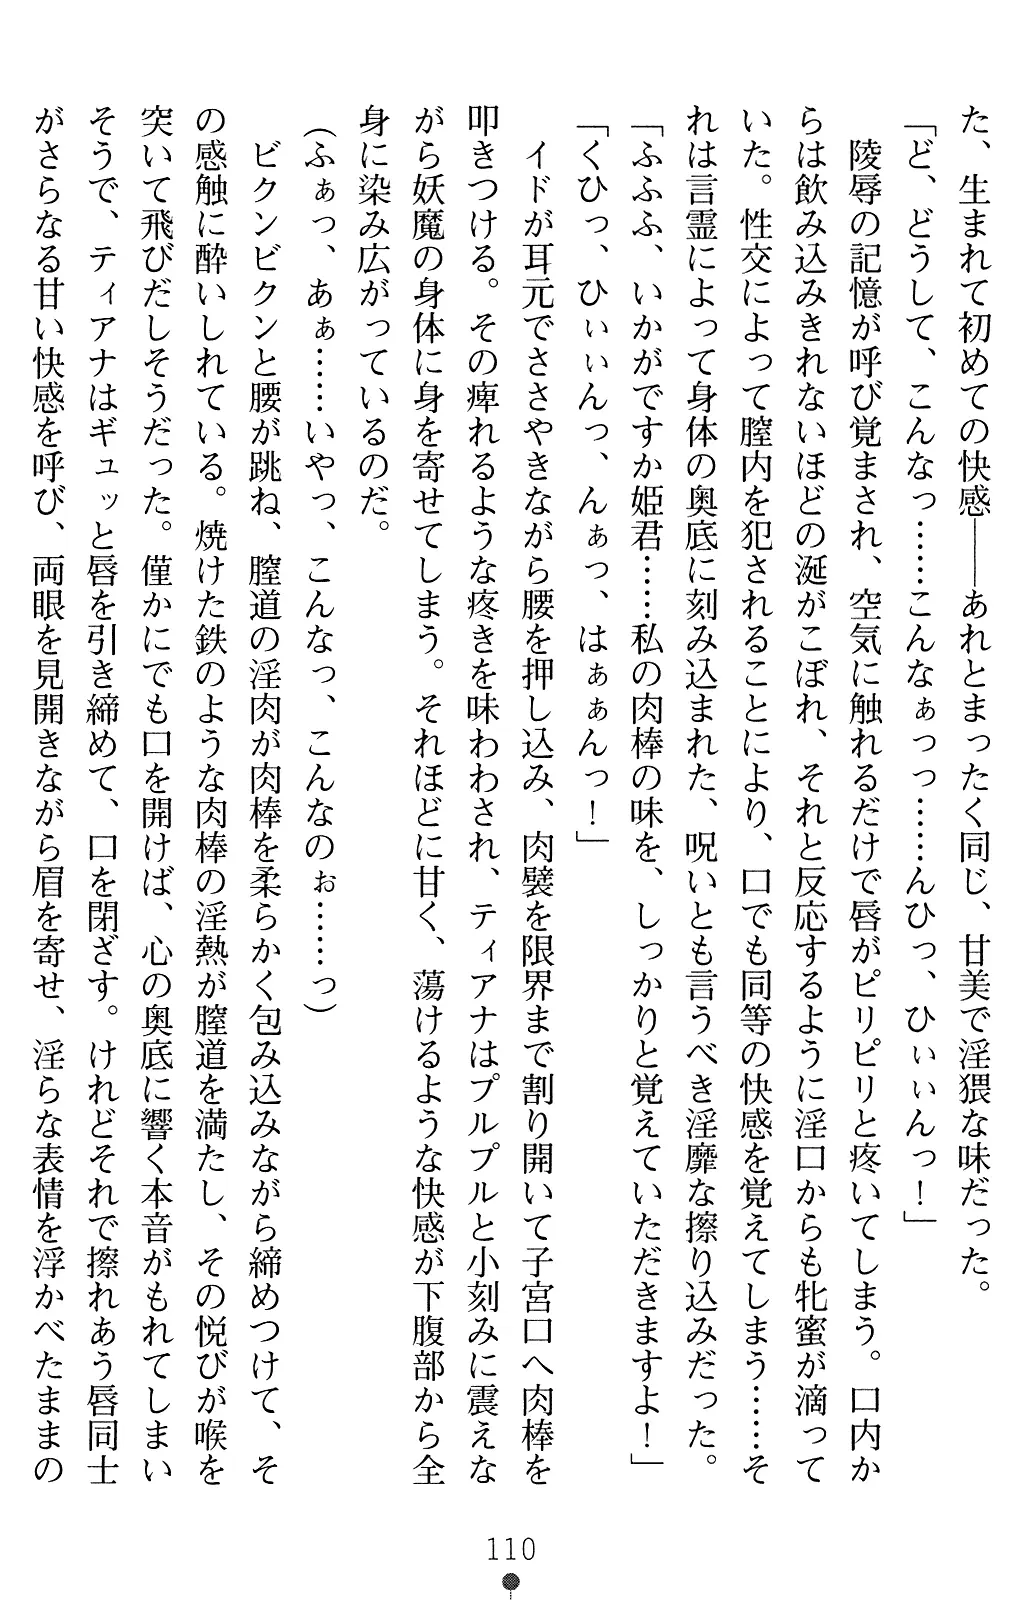 た、生まれて初めての快感――あれとまったく同じ、甘美で淫猥な味だった。
「ど、どうして、こんなっ……こんなぁっっ……んひっ、ひぃぃんっ！」
陵辱の記憶が呼び覚まされ、空気に触れるだけで唇がピリピリと疼いてしまう。口内か
らは飲み込みきれないほどの涎がこぼれ、それと反応するように淫口からも牝蜜が滴って
いた。性交によって膣内を犯されることにより、口でも同等の快感を覚えてしまう……そ
れは言霊によって身体の奥底に刻み込まれた、呪いとも言うべき淫靡な擦り込みだった。
「ふふふ、いかがですか姫君……私の肉棒の味を、しっかりと覚えていただきますよ！」
「くひっ、ひぃぃんっ、んぁっ、はぁぁんっ！」
イドが耳元でささやきながら腰を押し込み、肉襞を限界まで割り開いて子宮口へ肉棒を
叩きつける。その痺れるような疼きを味わわされ、ティアナはプルプルと小刻みに震えな
がら妖魔の身体に身を寄せてしまう。それほどに甘く、蕩けるような快感が下腹部から全
身に染み広がっているのだ。
（ふぁっ、あぁ……いやっ、こんなっ、こんなのぉ……っ）
ビクンビクンと腰が跳ね、膣道の淫肉が肉棒を柔らかく包み込みながら締めつけて、そ
の感触に酔いしれている。焼けた鉄のような肉棒の淫熱が膣道を満たし、その悦びが喉を
突いて飛びだしそうだった。僅かにでも口を開けば、心の奥底に響く本音がもれてしまい
そうで、ティアナはギュッと唇を引き締めて、口を閉ざす。けれどそれで擦れあう唇同士
がさらなる甘い快感を呼び、両眼を見開きながら眉を寄せ、淫らな表情を浮かべたままの
110